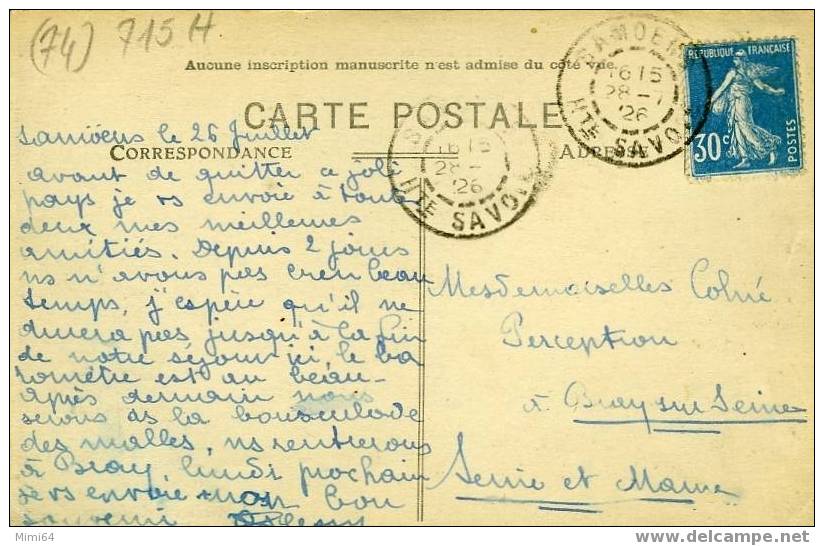 (74) 715 H
Aucune inscription manuscrite n'est admise du côté vue.
CARTE POSTALE
CORRESPONDANCE
ADRESSE
SAMOENS
16 15
28 - 7
26
HTE SAVOIE
16 15
28 -
26
HTE SAVOIE
REPUBLIQUE FRANCAISE
30c
POSTES
Samoëns le 26 Juillet
avant de quitter ce joli
pays je vs envoie à toutes
deux mes meilleures
amitiés. Depuis 2 jours
ns n'avons pas eu beau
temps, j'espère qu'il ne
durera pas jusqu'à la fin
de notre séjour ici, le ba
romètre est au beau_
après demain nous
serons ds la bousculade
des malles, ns rentrerons
à Bray lundi prochain
je vs envoie mon bon
souvenir
Mesdemoiselles Colné
Perception
à Bray sur Seine
Seine et Marne
Mimi64
www.delcampe.net